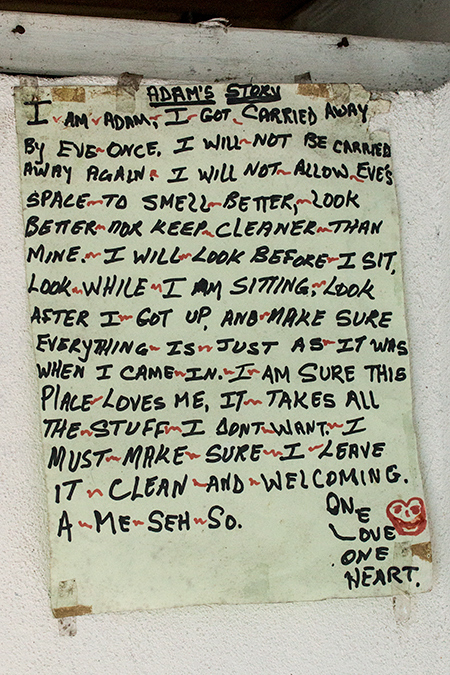 ADAM'S STORY
I ~ AM ~ ADAM, I ~ GOT ~ CARRIED AWAY
BY EVE ~ ONCE. I WILL ~ NOT BE CARRIED
AWAY AGAIN. I WILL NOT ~ ALLOW ~ EVE'S
SPACE ~ TO SMELL ~ BETTER, ~ LOOK
BETTER ~ NOR KEEP ~ CLEANER ~ THAN
MINE. ~ I WILL ~ LOOK BEFORE ~ I SIT,
LOOK ~ WHILE ~ I AM SITTING, ~ LOOK
AFTER I ~ GOT UP, AND ~ MAKE SURE
EVERYTHING ~ IS ~ JUST AS ~ IT WAS
WHEN I CAME ~ IN. ~ I ~ AM SURE THIS
PLACE ~ LOVES ME, IT ~ TAKES ALL
THE ~ STUFF ~ I DONT ~ WANT. ~ I
MUST ~ MAKE ~ SURE ~ I ~ LEAVE
IT ~ CLEAN ~ AND ~ WELCOMING.
A ~ ME ~ SEH ~ SO.
ONE
LOVE
ONE
HEART.